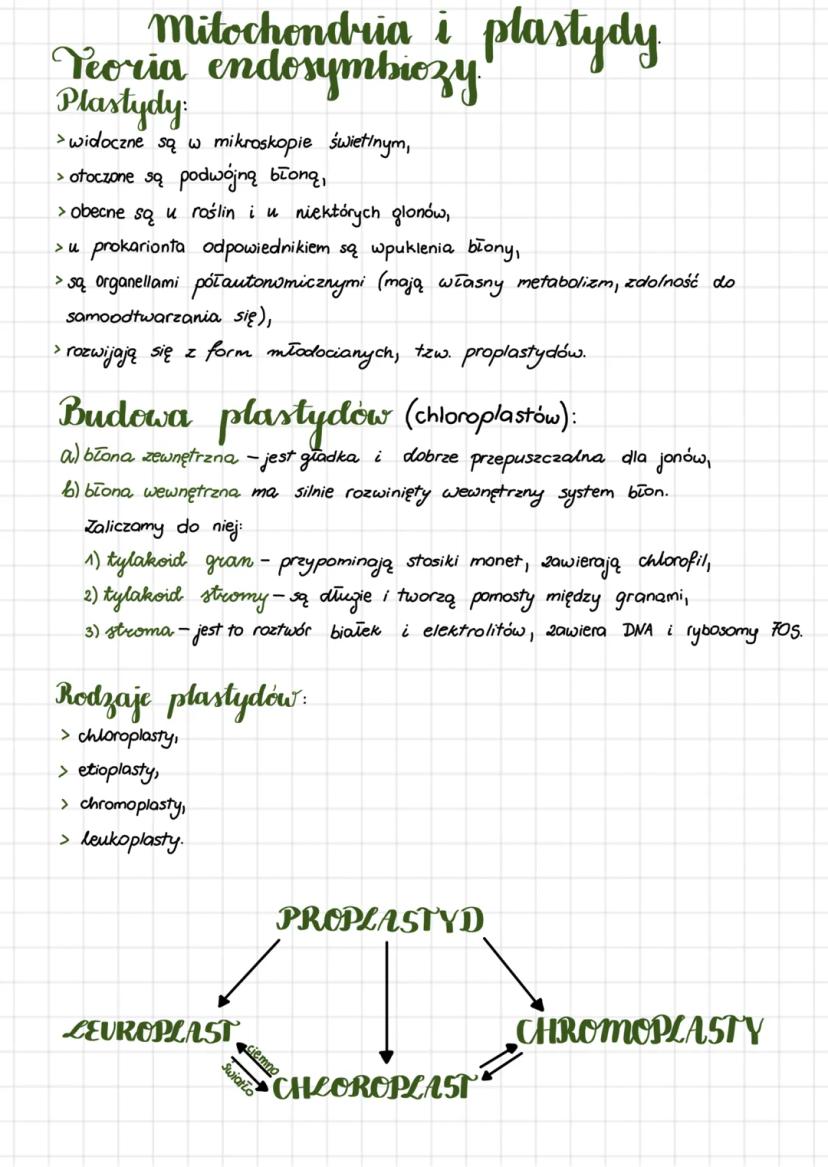 Mitochondria i plastydy.
Teoria endosymbiozy.
Plastydy:
> widoczne są w mikroskopie świetlnym,
> otoczone są podwójną błoną,
> obecne są u roślin i u niektórych glonów,
> u prokarionta odpowiednikiem są wpuklenia błony,
> są organellami półautonomicznymi (mają własny metabolizm, zdolność do
samoodtwarzania się),
> rozwijają się z form młodocianych, tzw. proplastydów.
Budowa plastydów (chloroplastów):
a) błona zewnętrzna – jest gładka i dobrze przepuszczalna dla jonów,
b) błona wewnętrzna ma silnie rozwinięty wewnętrzny system błon.
Zaliczamy do niej:
1) tylakoid gran – przypominają stosiki monet, zawierają chlorofil,
2) tylakoid stromy – są długie i tworzą pomosty między granami,
3) stroma – jest to roztwór białek i elektrolitów, zawiera DNA i rybosomy 70S.
Rodzaje plastydów:
> chloroplasty,
> etioplasty,
> chromoplasty,
> leukoplasty.
PROPLASTYD
LEUROPLAST
CHROMOPLASTY
ciemno
światło
CHLOROPLAST